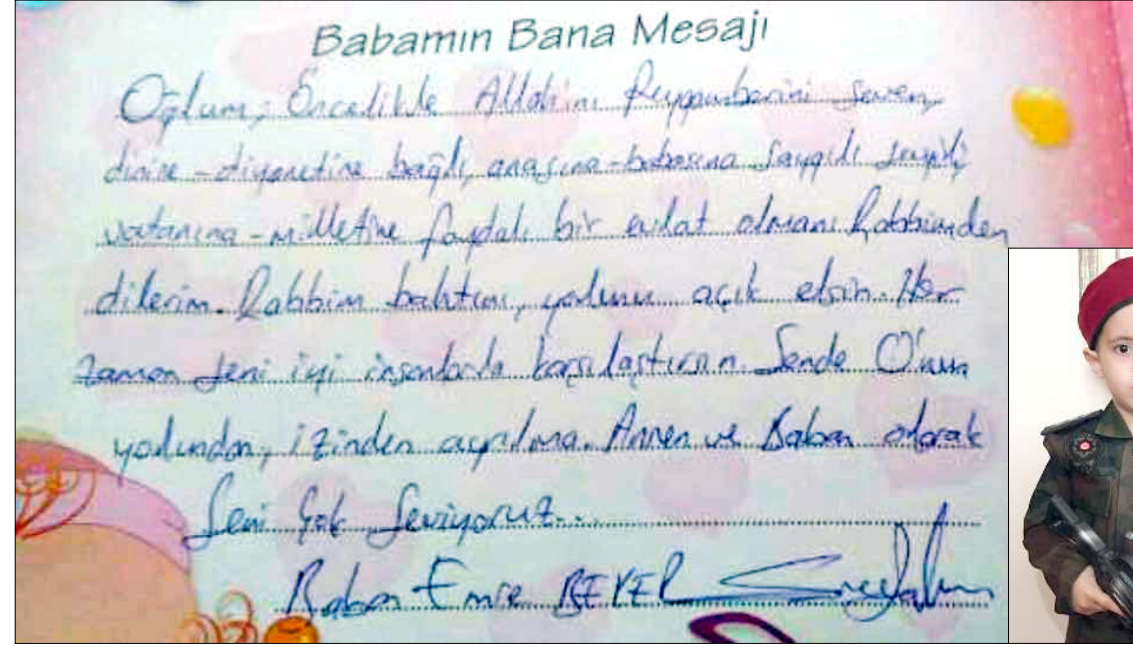 Babamın Bana Mesajı
Oğlum, Öncelikle Allah'ını Peygamberini seven,
dinine - diyanetine bağlı, anasına - babasına saygılı sevgili,
vatanına - milletine faydalı bir evlat olmanı Rabbimden
dilerim. Rabbim bahtını, yolunu açık etsin. Her
zaman seni iyi insanlarla karşılaştırsın. Sende O'nun
yolundan, izinden ayrılma. Annen ve Baban olarak
Seni Çok Seviyoruz...
Baban Emre